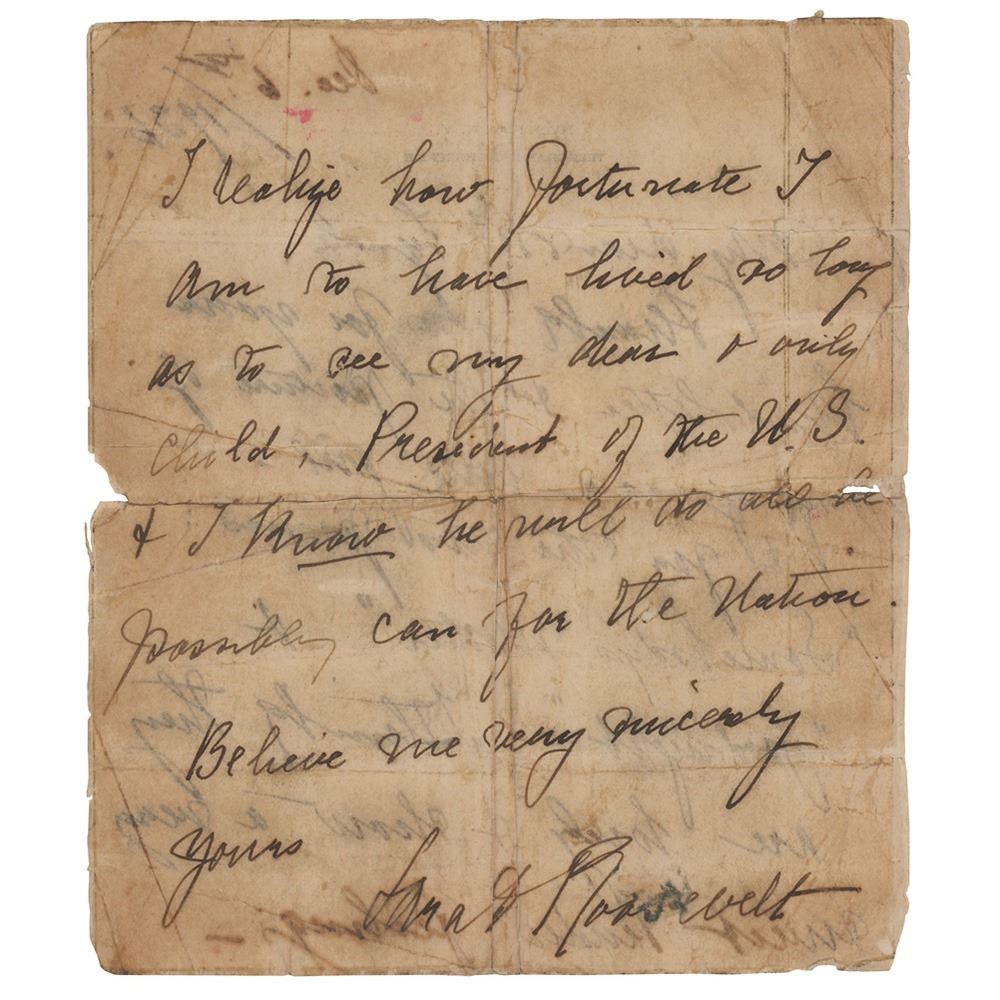 I realize how fortunate I
am to have lived so long
as to see my dear & only
child, President of the U.S.
& I know he will do all he
possibly can for the Nation.
Believe me very sincerely
yours
Sara D Roosevelt